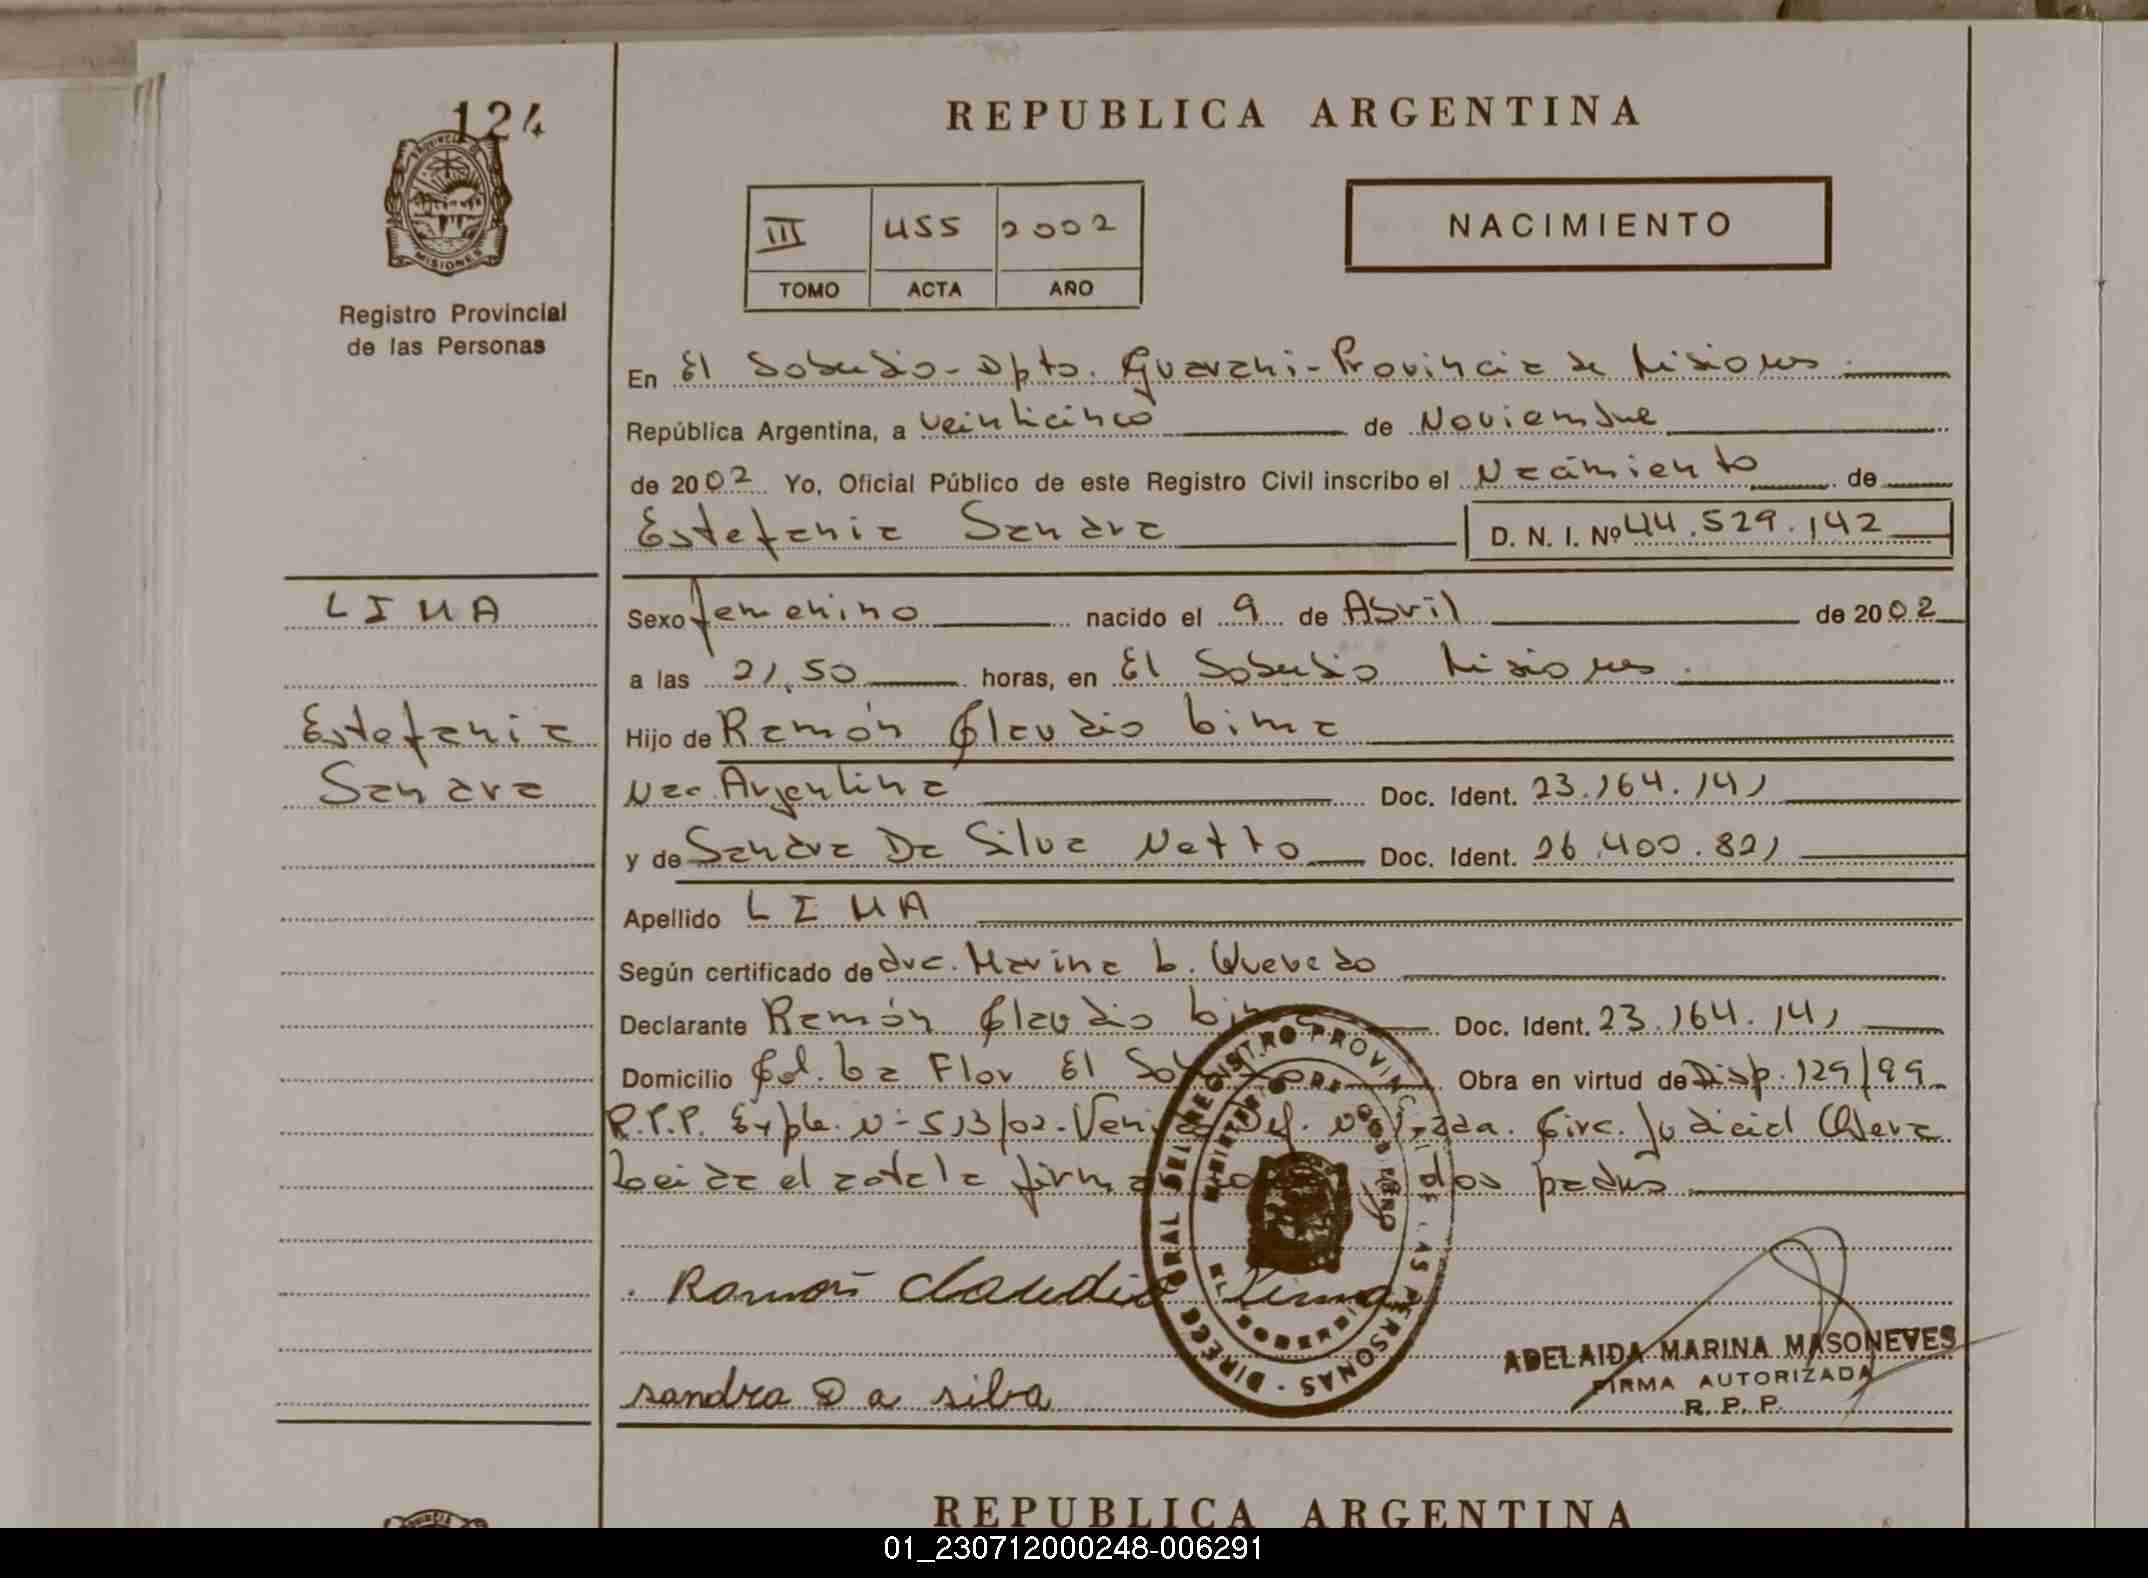 124
REPUBLICA ARGENTINA
PROVINCIA DE
MISIONES
III 455 2002
TOMO ACTA AÑO
NACIMIENTO
Registro Provincial
de las Personas
En El Soberbio - Dpto. Guarani - Provincia de Misiones.
República Argentina, a veinticinco de Noviembre
de 2002 Yo, Oficial Público de este Registro Civil inscribo el Nacimiento de
Estefania Sandra D. N. I. Nº 44.529.142
LIMA
Sexo femenino nacido el 9 de Abril de 2002
a las 21,50 horas, en El Soberbio Misiones.
Estefania
Hijo de Ramón Claudio Lima
Sandra
Nac. Argentina Doc. Ident. 23.164.141
y de Sandra Da Silva Netto Doc. Ident. 26.400.821
Apellido LIMA
Según certificado de dra. Marina L. Quevedo
Declarante Ramón Claudio Lima Doc. Ident. 23.164.141
Domicilio Col. La Flor El Obra en virtud de Disp. 129/99
R.P.P. Expte. Nº 513/02. Def. Circ. Judicial Obera
Leida el acta la firma dos padres
Ramón Claudio Lima
sandra D a silva
DIRECC GRAL DEL REGISTRO PROVINC DE LAS PERSONAS
MINISTERIO DE GOBIERNO
ADELAIDA MARINA MASONEVES
FIRMA AUTORIZADA
R. P. P.
REPUBLICA ARGENTINA
01_230712000248-006291